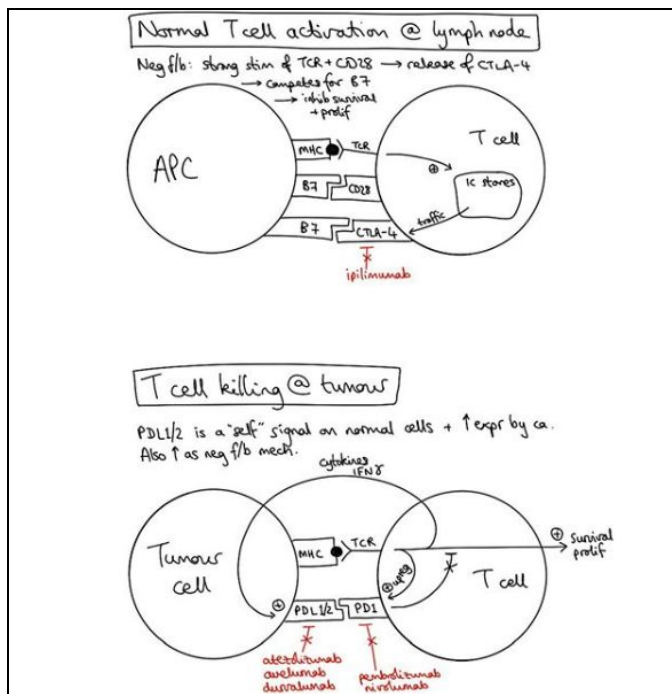 Normal T cell activation @ lymph node
Neg f/b: strong stim of TCR + CD28 → release of CTLA-4
→ competes for B7
→ inhib survival
+ prolif
APC
MHC
TCR
T cell
⊕
B7
CD28
IC stores
B7
CTLA-4
traffic
ipilimumab
T cell killing @ tumour
PDL1/2 is a "self" signal on normal cells + ↑ expr by ca.
Also ↑ as neg f/b mech.
cytokines
IFNγ
Tumour
cell
MHC
TCR
⊕ survival
prolif
⊕ upreg
T cell
⊕
PDL1/2
PD1
atezolizumab
avelumab
durvalumab
pembrolizumab
nivolumab